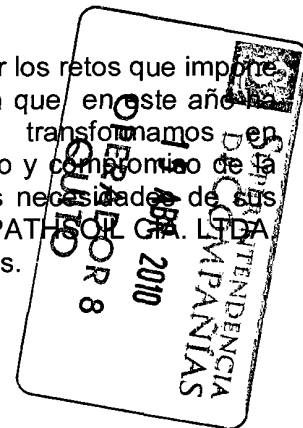 r los retos que impone
que en este año ha
transformamos en
o y compromiso de la
s necesidades de sus
PATHSOIL CIA. LTDA.
s.
SUPERINTENDENCIA
DE COMPAÑIAS
ABR 2010
OPERADOR 8
QUITO